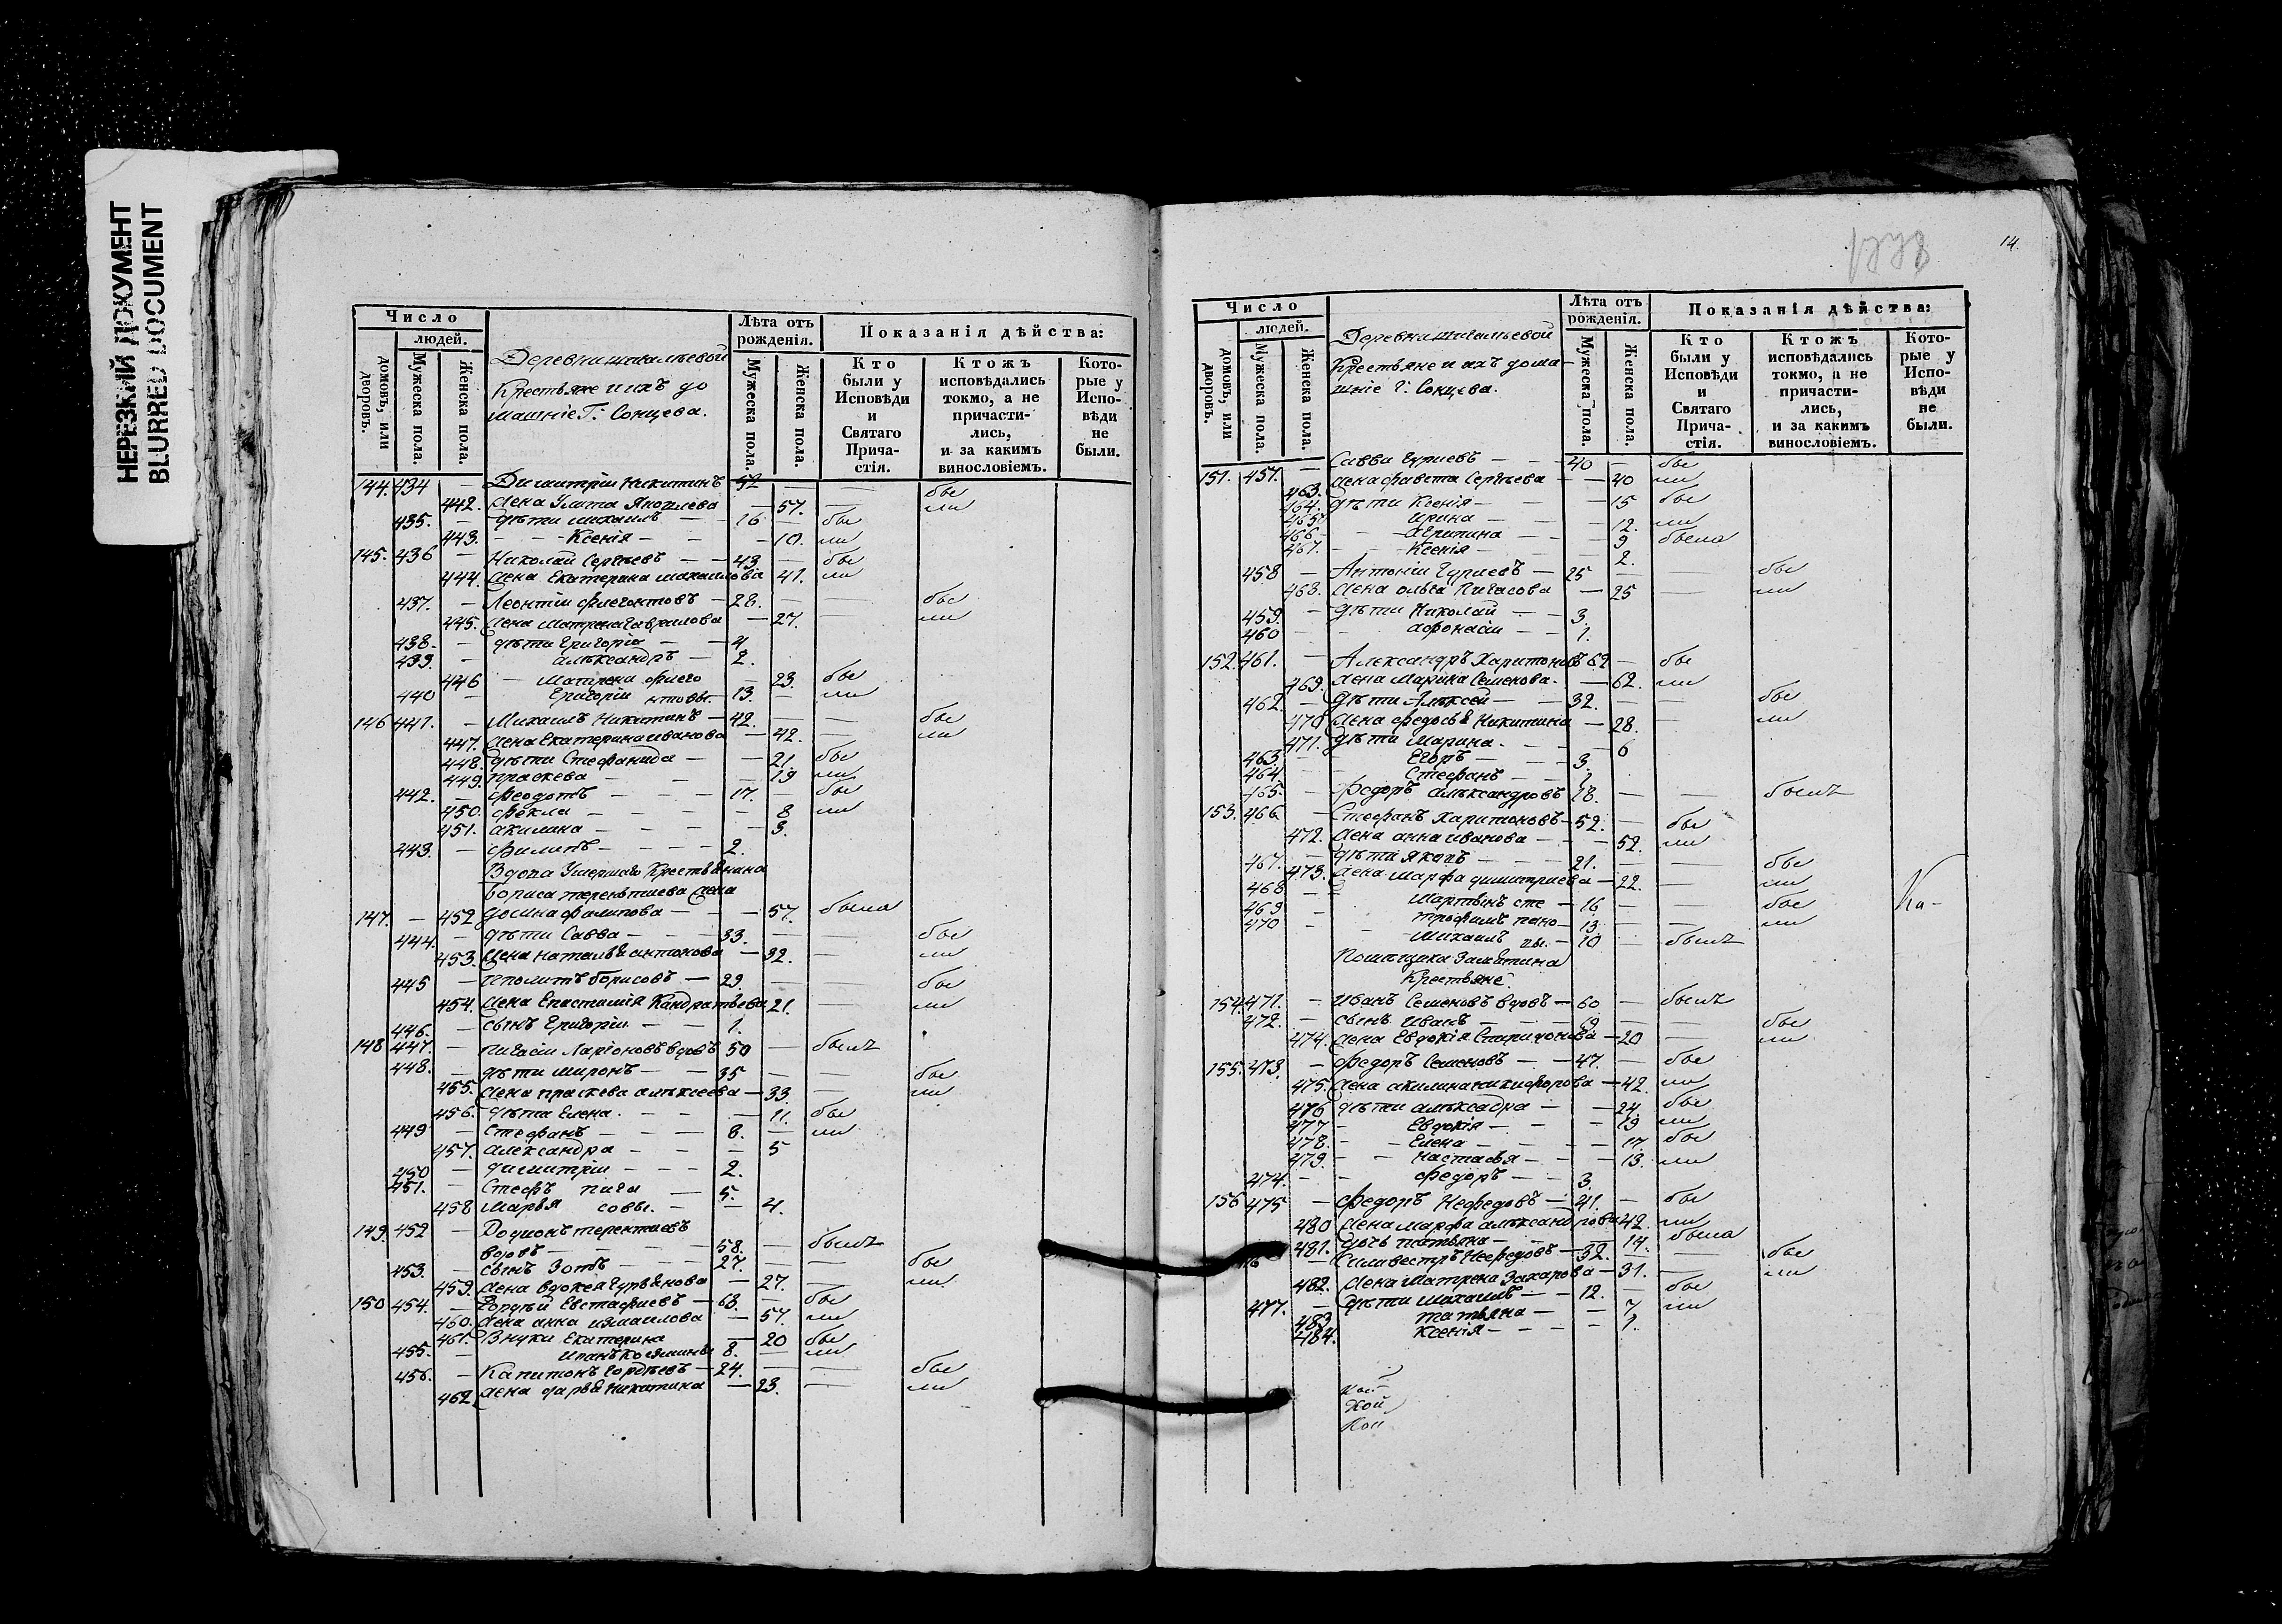 НЕРЕЗКИЙ ДОКУМЕНТ
BLURRED DOCUMENT
Число
людей.
домовъ, или дворовъ.
Мужеска пола.
Женска пола.
Деревни
Крестьяне и ихъ до
машніе Г: Сонцева.
Лѣта отъ рожденія.
Мужеска пола.
Женска пола.
Показанія дѣйства:
Кто были у Исповѣди и Святаго Прича-стія.
Ктожъ исповѣдались токмо, а не причасти-лись, и за какимъ винословіемъ.
Кото-рые у Испо-вѣди не были.
144. 434 — Димитрій Никитинъ 52 — — бы
442. Жена Улита Яковлева — 57. — ли
435. — дѣти Михаилъ — 16 — бы
443. — Ксенія — — 10. ли
145. 436 — Николай Сергѣевъ — 43 — бы
444. Жена Екатерина Михаилова 41. ли
437. — Леонтій Флегонтовъ — 28. — — бы
445. Жена Матрена Гаврилова — 27. — ли
438. — дѣти Григорій — 4
439. — Александръ — 2.
446 — Матрена Флего — 23. бы
440 — Григорій нтовы. — 13. — ли
146 441. — Михаилъ Никитинъ — 42. — — бы
447. Жена Екатерина Иванова — 42. — ли
448. дѣти Стефанида — — 21. бы
449. Праскева — — 19 ли
442. — Феодотъ — — — 17. — бы
450. Фекла — — — 8 ли
451. Акилина — — — 3.
443. — Филипъ — — — 2.
Вдова Умершаго Крестьянина
Бориса Терентиева Жена
147. — 452 Филипова — — 57. была
444. — дѣти Савва — — 33. — — бы
453. Жена Наталья Антонова — 32. — ли
445 — Иполитъ Борисовъ — 29. — — бы
454. Жена Епистимія Кандратьева 21. — ли
446. — сынъ Григорій — — 1.
148 447. — Пигасій Ларіоновъ вдовъ 50 — былъ
448. — дѣти Миронъ — — 35 — — бы
455. Жена Праскева Алексеева — 33. — ли
456. дѣти Елена. — — 11. бы
449 — Стефанъ — — — 8. — ли
457. Александра — — — 5
450 — Димитрій — — — 2.
451. — Стефъ Пига — 5.
458 Марья совы. — — 4.
149. 452 — Родионъ Терентиевъ
вдовъ — — — 58. — былъ
453. — сынъ Зотъ — — 27. — — бы
459. Жена Вдокея — 27. — ли
150 454. — Гордѣй Евстафиевъ — 68. — бы
460. Жена Анна Измаилова — 57. ли
461. Внуки Екатерина — 20 бы
455. — Иванъ Козмины 8. — ли
456. — Капитонъ Гордѣевъ — 24. — — бы
462. Жена Дарья Никитина — 23. — ли
14.
Число
людей.
домовъ, или дворовъ.
Мужеска пола.
Женска пола.
Деревни
Крестьяне и ихъ дома-
шніе Г: Сонцева.
Лѣта отъ рожденія.
Мужеска пола.
Женска пола.
Показанія дѣйства:
Кто были у Исповѣди и Святаго Прича-стія.
Ктожъ исповѣдались токмо, а не причасти-лись, и за какимъ винословіемъ.
Кото-рые у Испо-вѣди не были.
151. 457. — Савви Гуриевъ — — 40 — бы
463. Жена Фавета Сергѣева — — 40 ли
464. дѣти Ксенія — — 15 бы
465. Ирина — — 12. ли
466 — Агрипина — — 9 была
467. — Ксенія — — 2.
458 — Антоній Гуриевъ — 25 — — бы
468. Жена Ольга Пигасова — 25 — ли
459. — дѣти Николай — — 3.
460 — Афонасій — — 1.
152. 461. — Александръ Харитоновъ 62 — бы
469. Жена Марина Семенова. — 62. ли
462. — дѣти Алексей — — 32. — — бы
470 Жена Федосья Никитина — 28. — ли
471. дѣти Марина. — — 6
463. — Егоръ — — 3.
464 — Стефанъ — — 1.
465. — Федоръ Александровъ 18. — — былъ
153. 466 — Стефанъ Харитоновъ — 52. — бы
472. Жена Анна Иванова — — 52. ли
467. — дѣти Яковъ — — 21. — — бы
473. Жена Марфа Димитриева — 22. — ли
468 — Мартынъ Сте — 16 — — бы
469 — Трофимъ пано — 13 — — ли
470 — Михаилъ вы. — 10 — былъ
Ка-
Помѣщика Замятина
Крестьяне.
154. 471. — Иванъ Семеновъ вдовъ — 60 — былъ
472. — сынъ Иванъ — — 19 — — бы
474. Жена Евдокія Спиридонова — 20 — ли
155. 473. — Федоръ Семеновъ — — 47. — бы
475. Жена Акилина Никифорова — 42. ли
476 дѣти Алексадра — — 24. бы
477 — Евдокія — — 19 ли
478. — Елена — — 17. бы
479. — Настасья — — 13. ли
474. — Федоръ — — 3.
156 475 — Федоръ Нефедовъ — 41. — бы
480 Жена Марфа Александрова 42. ли
481. Дочь Татьяна — — 14. была
— Силивестръ Нефедовъ — 32. — — бы
482. Жена Матрена Захарова — 31. — ли
477. — дѣти Михаилъ — — 12. — бы
483. Татьяна — — 7. ли
484. Ксенія — — 1.